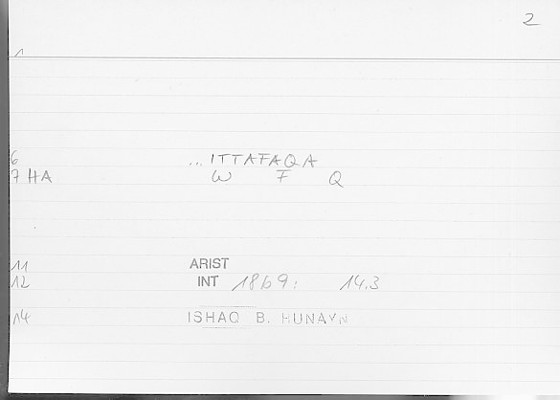 2
1
6 ... ITTAFAQA
7 HA W F Q
11 ARIST
12 INT 18b9: 14.3
14 ISHAQ B. HUNAYN